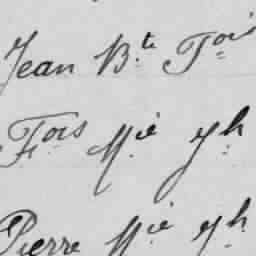 Jean B.te Fois
Fois M.ie yh.
Pierre M.ie yh.